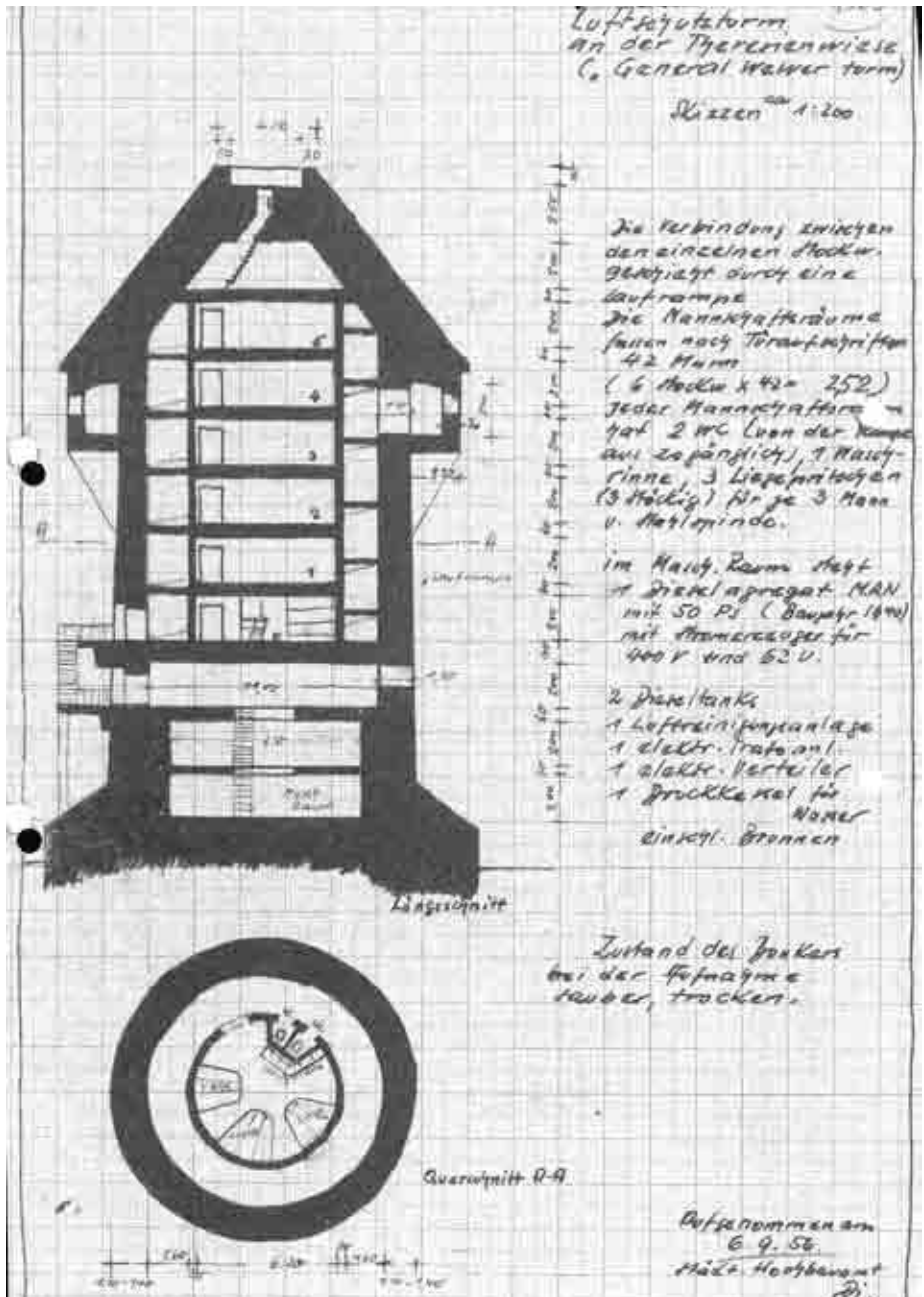 Luftschutzturm
an der Theresenwiese
(„General Wewer turm)
Skizzen 1:200
Die Verbindung zwischen
den einzelnen Stockw.
geschieht durch eine
Lauframpe
Die Mannschaftsräume
fassen nach Türaufschriften
42 Mann
(6 Stockw x 42 = 252)
Jeder Mannschaftsra
hat 2 WC (von der Rampe
aus zugänglich), 1 Wasch-
rinne, 3 Liegepritschen
(3 stöckig) für je 3 Mann
u.
im Masch. Raum steht
1 Dieselagregat MAN
mit 50 PS (Baujahr 1940)
mit Stromerzeuger für
400 V und 62 V.
2 Dieseltanks
1 Luftreinigungsanlage
1 elektr.
1 elektr. Verteiler
1 Druckkessel für
Wasser
einschl. Brunnen
5
4
3
2
1
A A
Längsschnitt
Zustand des Bunkers
bei der Aufnahme
sauber, trocken.
Querschnitt A-A
Aufgenommen am
6.9.56
Städt. Hochbauamt